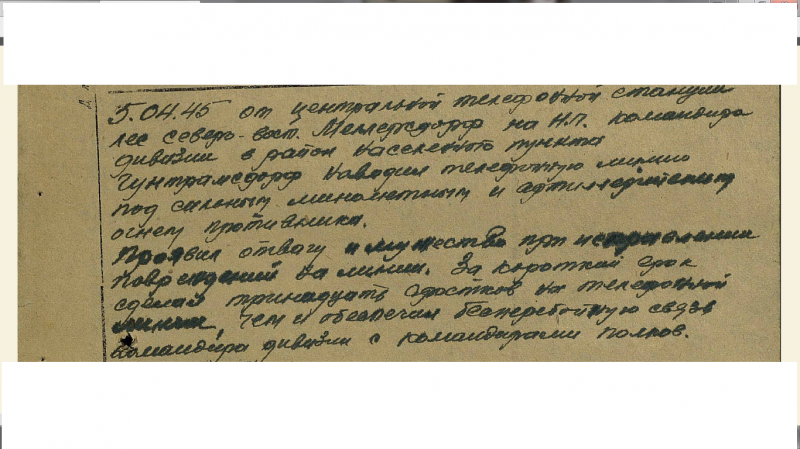 5.04.45 от центральной телефонной станции
лес северо-вост. Меллерсдорф на Н.П. командира
дивизии в район населенного пункта
Гунтрамсдорф наводил телефонную линию
под сильным минометным и артиллерийским
огнем противника.
Проявил отвагу и мужество при исправлении
повреждений на линии. За короткий срок
сделал тринадцать сростков на телефонной
линии, чем и обеспечил бесперебойную связь
командира дивизии с командирами полков.